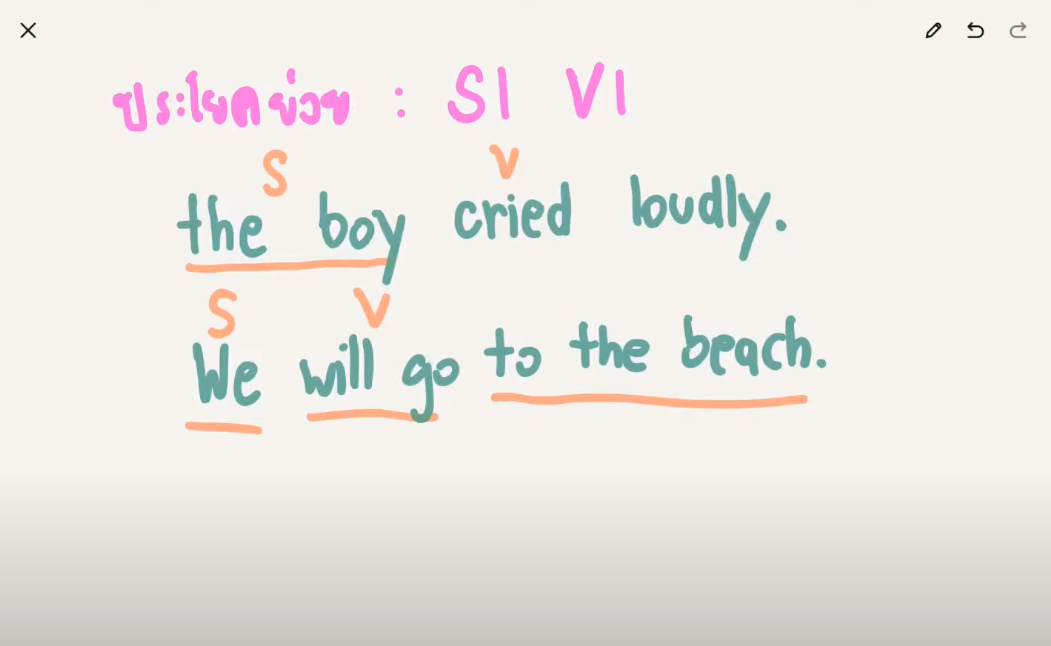 ประโยคย่อย : S1 V1
S V
the boy cried loudly.
S V
We will go to the beach.